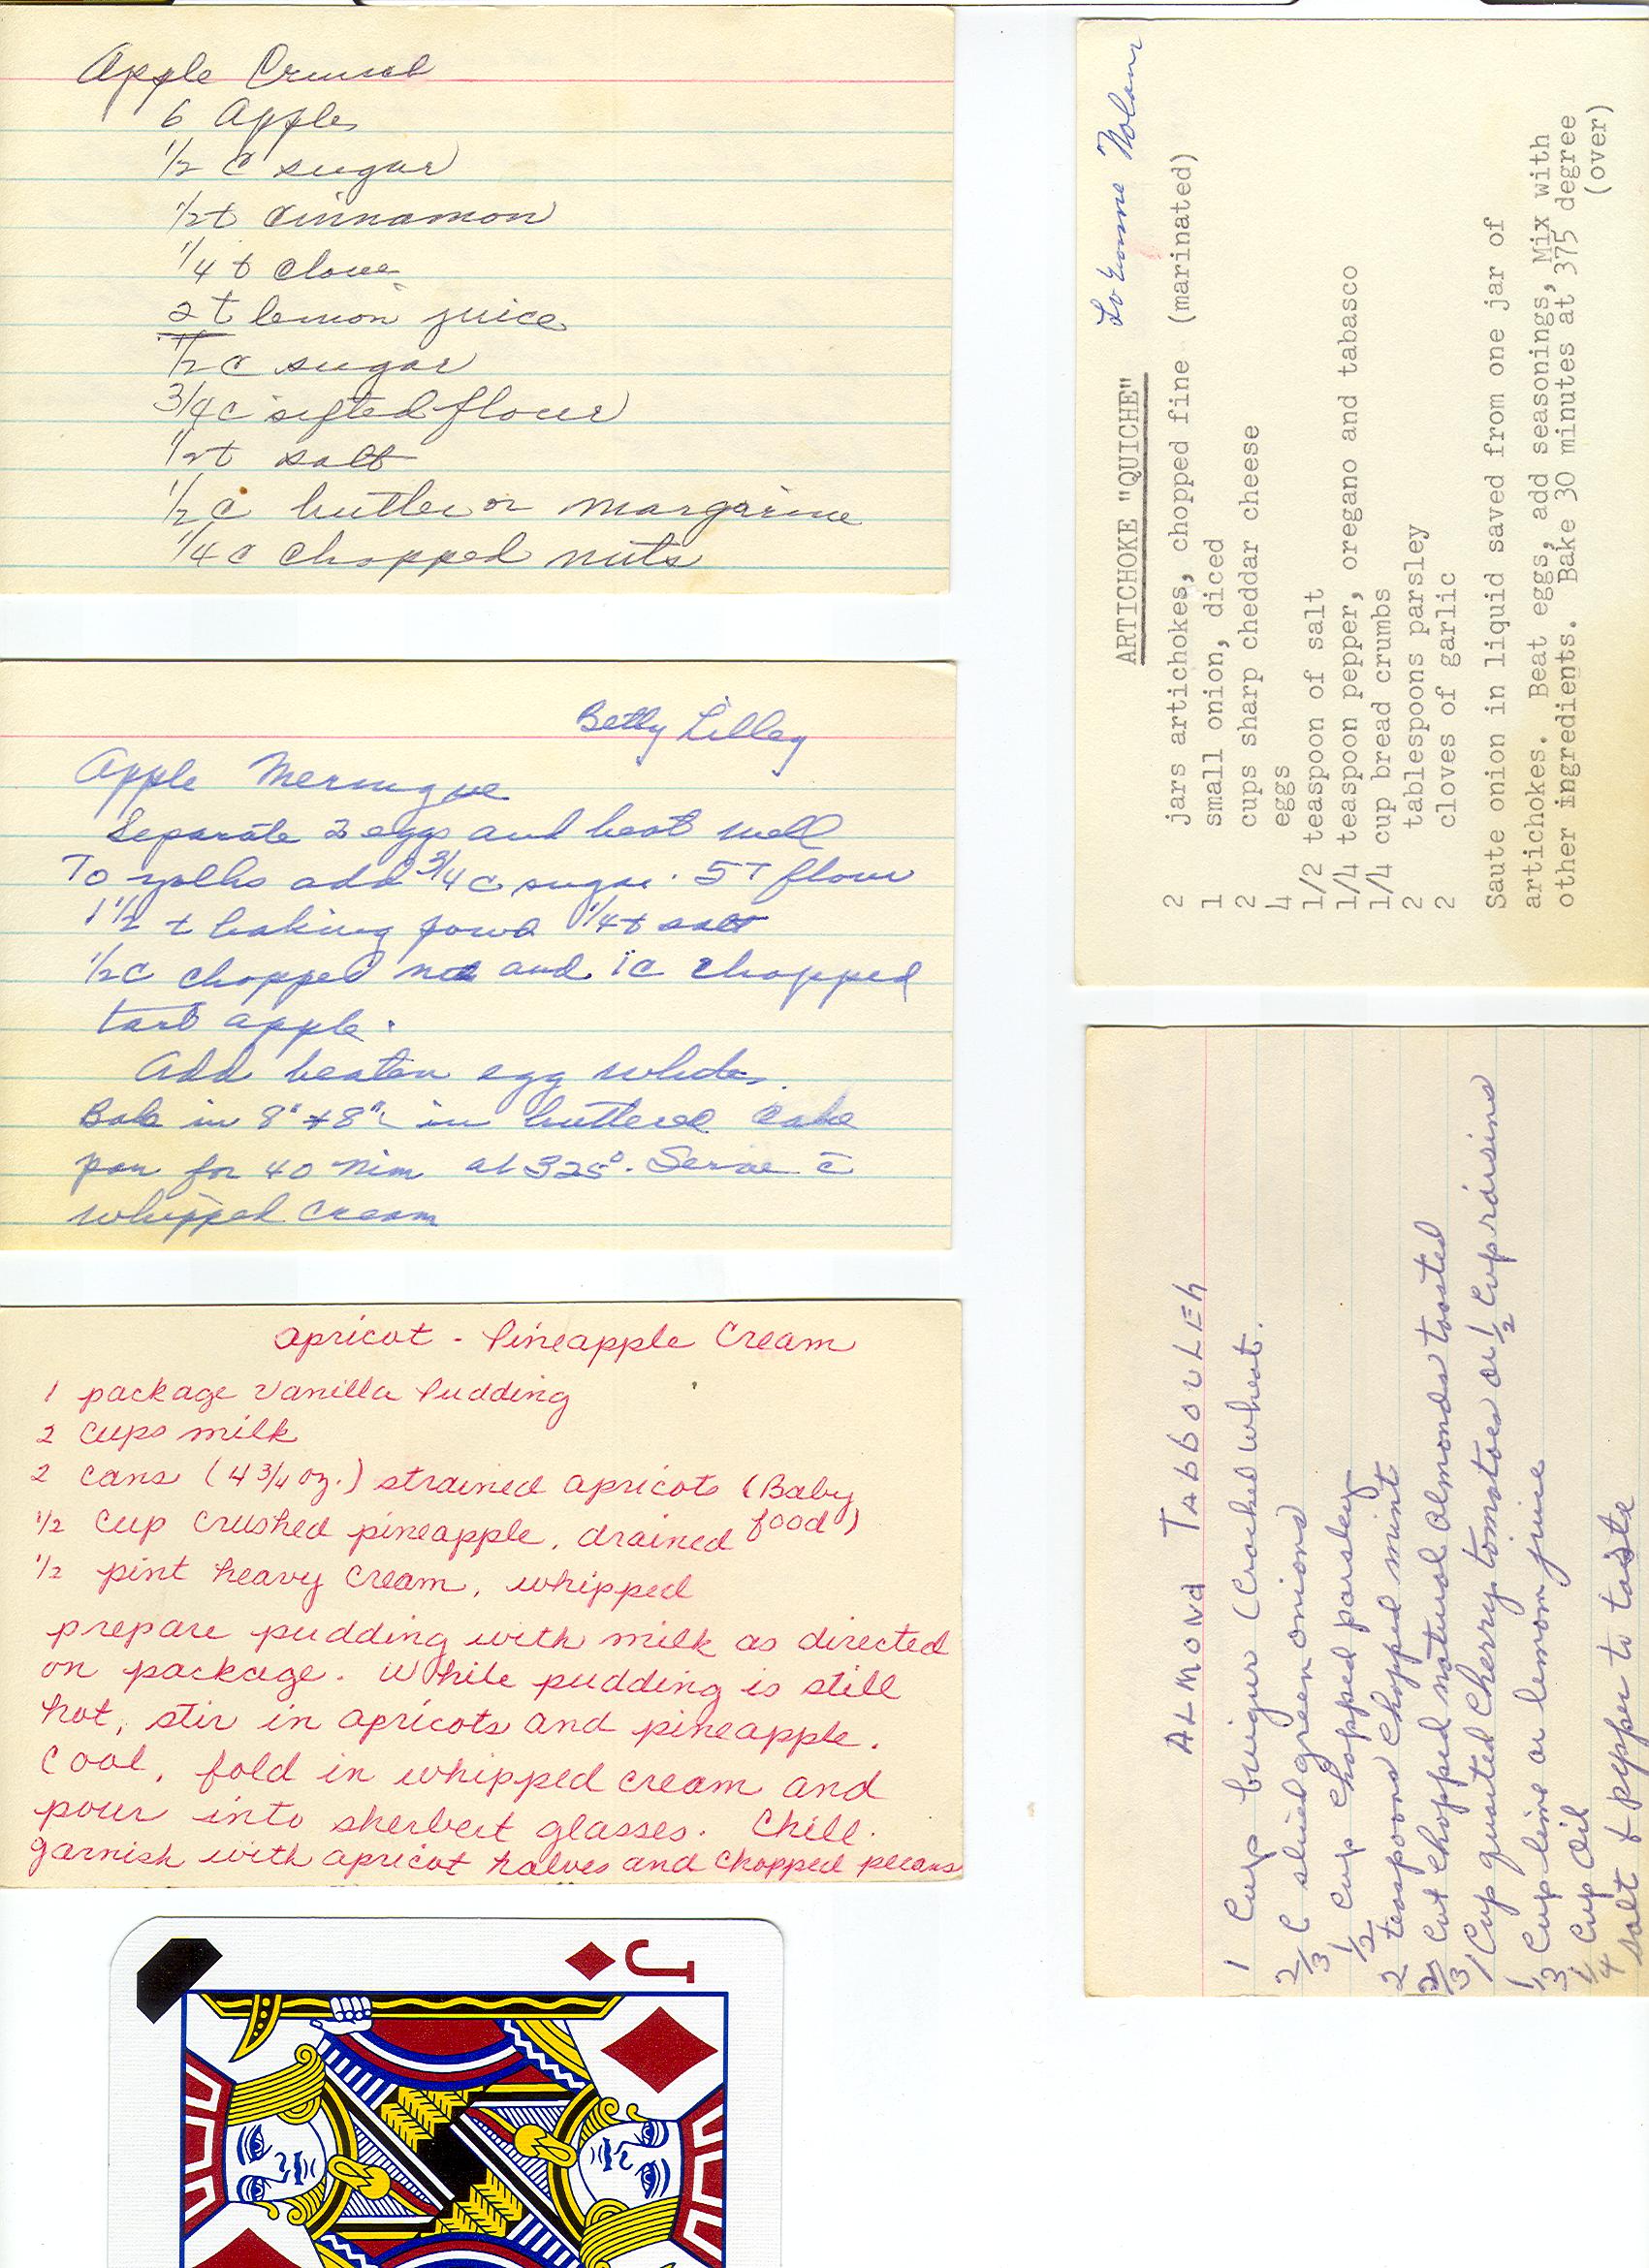 Apple Crunch
6 Apples
1/2 c sugar
1/2 t cinnamon
1/4 t clove
2 t lemon juice
1/2 c sugar
3/4 c sifted flour
1/2 t salt
1/2 c butter or margarine
1/4 c chopped nuts
Betty Lilley
Apple Meringue
Separate 2 eggs and beat well
To yolks add 3/4 c sugar. 5 T flour
1 1/2 t baking powd 1/4 t salt
1/2 c chopped nut and 1 c chopped
tart apple.
Add beaten egg whites.
Bake in 8" x 8" in buttered cake
pan for 40 min at 325°. Serve c̄
whipped cream
Apricot - Pineapple Cream
1 package Vanilla Pudding
2 cups milk
2 cans (4 3/4 oz.) strained apricots (Baby
food)
1/2 cup crushed pineapple, drained
1/2 pint heavy cream, whipped
prepare pudding with milk as directed
on package. While pudding is still
hot, stir in apricots and pineapple.
Cool, fold in whipped cream and
pour into sherbert glasses. Chill.
garnish with apricot halves and chopped pecans
J
Nolan
ARTICHOKE "QUICHE"
2 jars artichokes, chopped fine (marinated)
1 small onion, diced
2 cups sharp cheddar cheese
4 eggs
1/2 teaspoon of salt
1/4 teaspoon pepper, oregano and tabasco
1/4 cup bread crumbs
2 tablespoons parsley
2 cloves of garlic
Saute onion in liquid saved from one jar of
artichokes. Beat eggs, add seasonings, Mix with
other ingredients. Bake 30 minutes at 375 degree
(over)
ALMOND TABBOULEH
1 Cup bulgur (Cracked wheat.
2/3 C sliced green onions
1/2 Cup chopped parsley
2 teaspoons chopped mint
2/3 Cut chopped natural almonds toasted
1 Cup quarted Cherry tomatoes or 1/2 Cup raisins
1/3 Cup lime or lemon juice
1/4 Cup Oil
Salt & pepper to taste